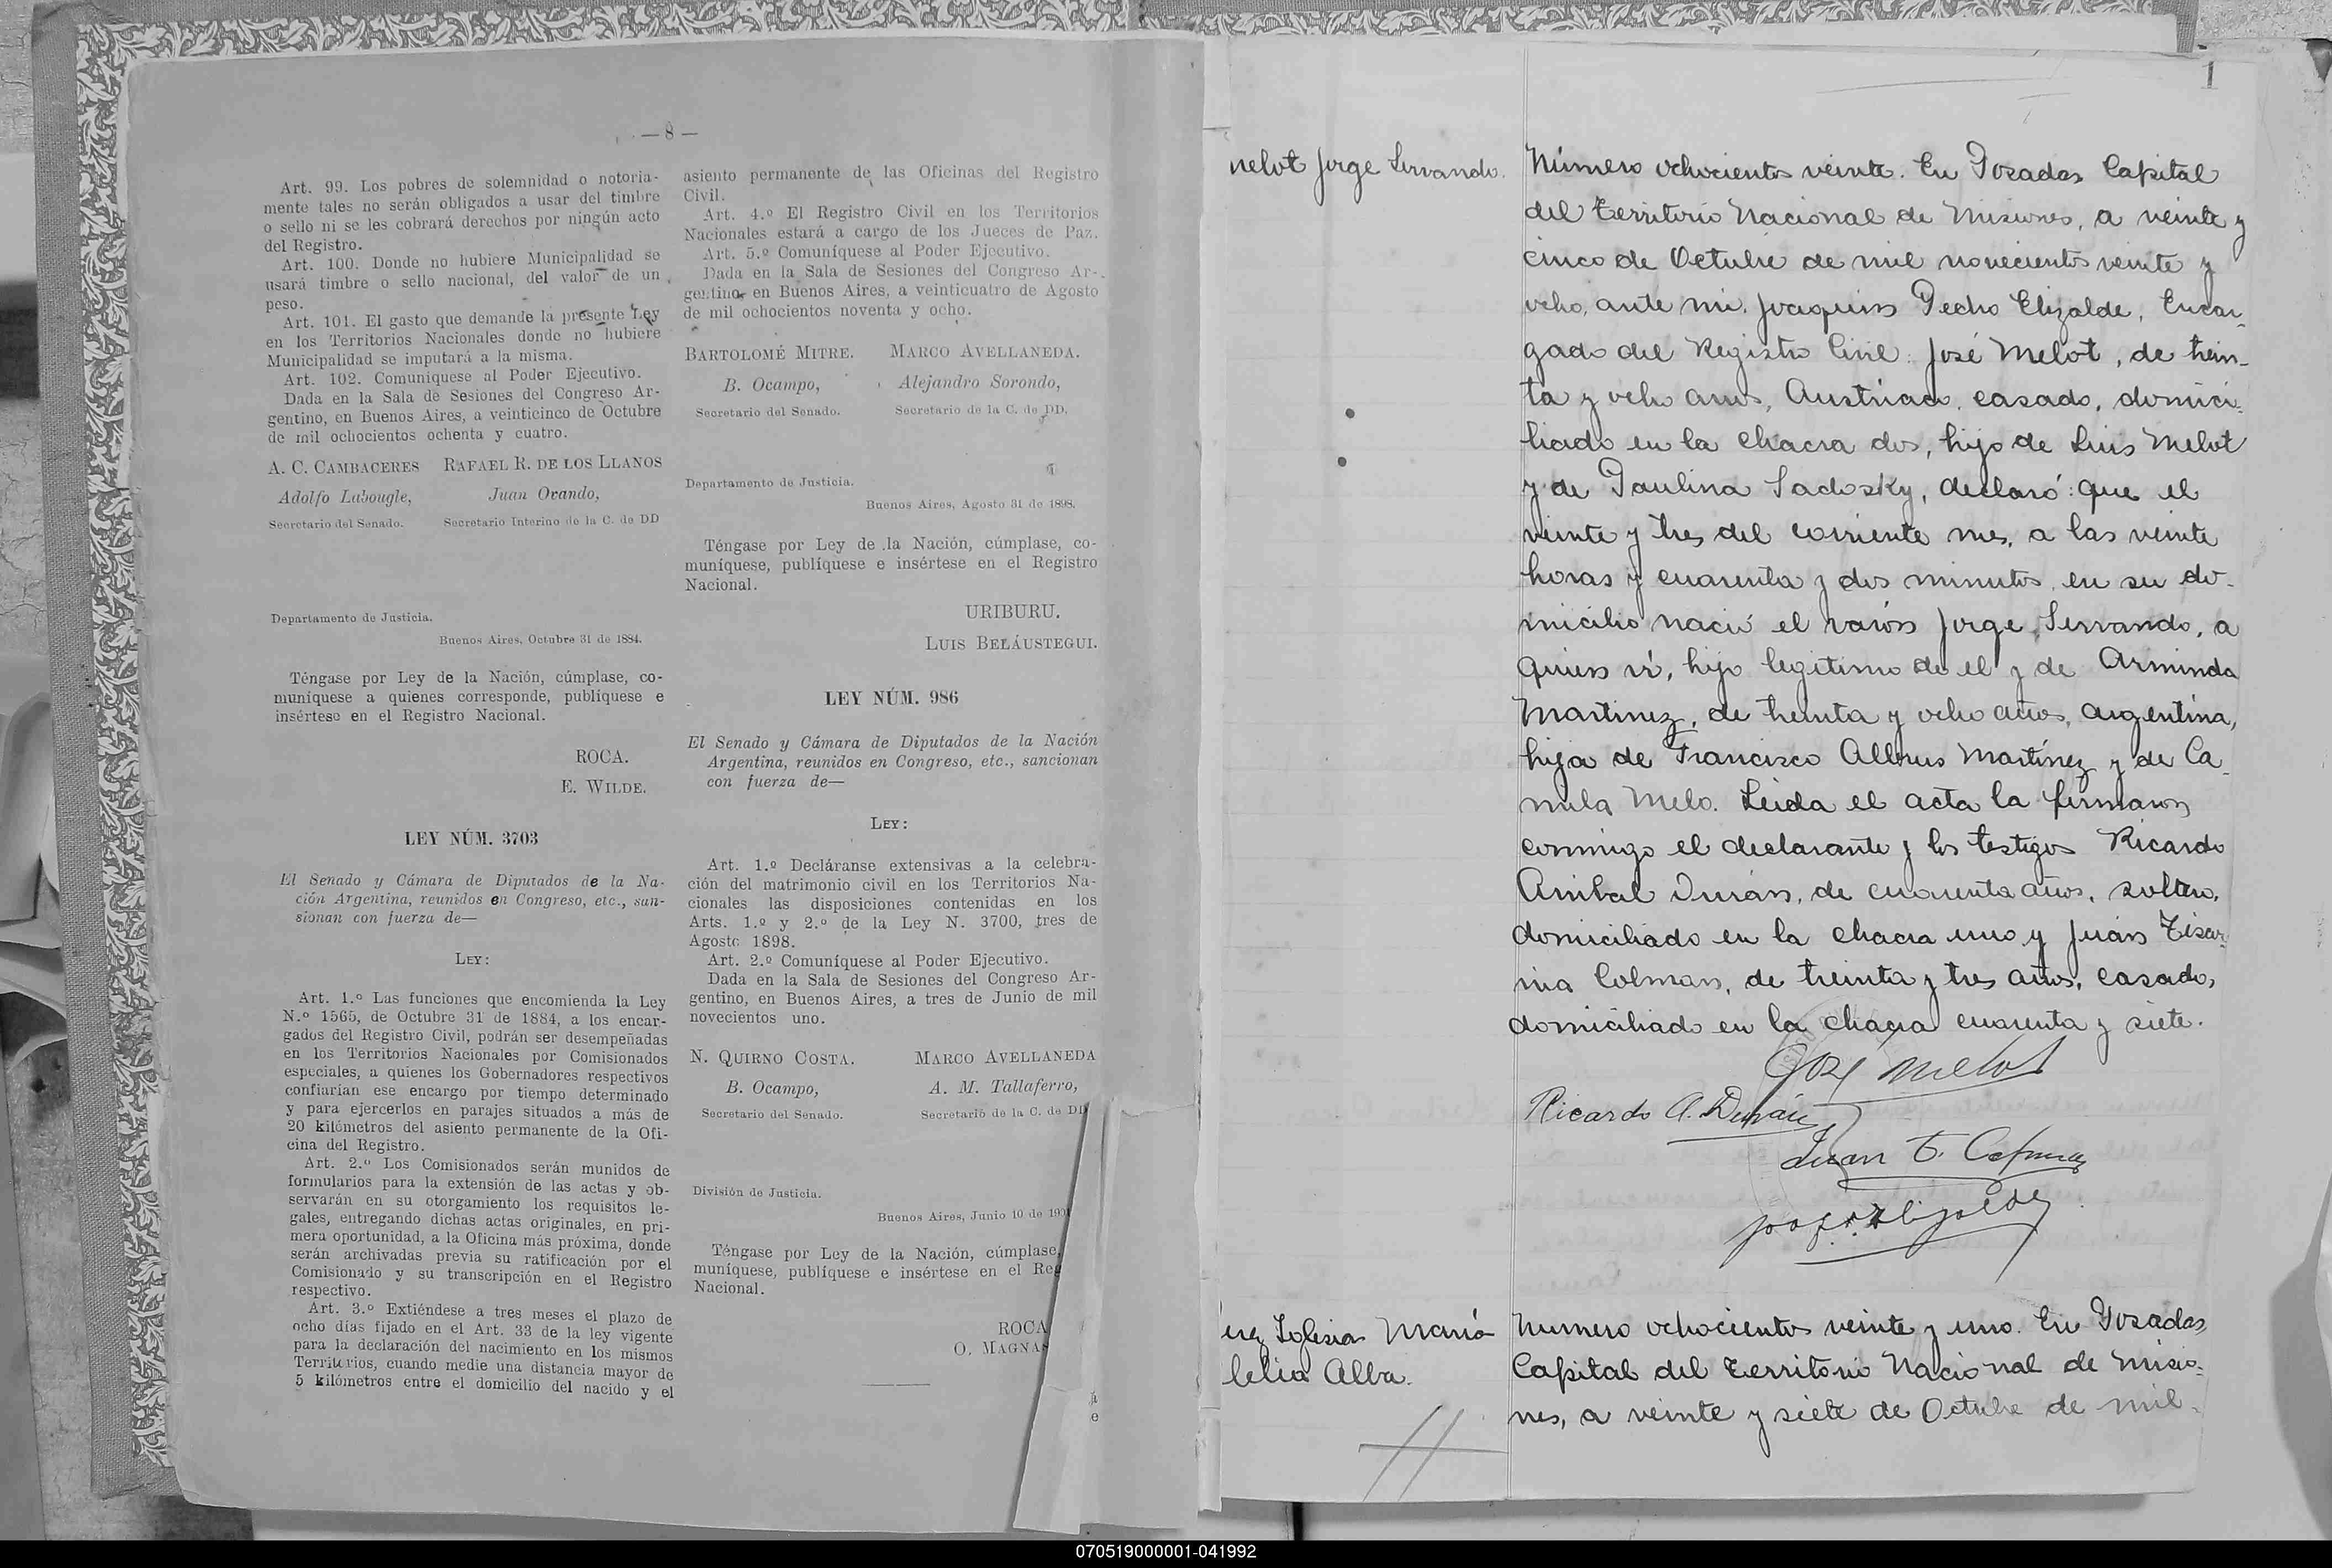 — 8 —
Art. 99. Los pobres de solemnidad o notoria-
mente tales no serán obligados a usar del timbre
o sello ni se les cobrará derechos por ningún acto
del Registro.
Art. 100. Donde no hubiere Municipalidad se
usará timbre o sello nacional, del valor de un
peso.
Art. 101. El gasto que demande la presente Ley
en los Territorios Nacionales donde no hubiere
Municipalidad se imputará a la misma.
Art. 102. Comuníquese al Poder Ejecutivo.
Dada en la Sala de Sesiones del Congreso Ar-
gentino, en Buenos Aires, a veinticinco de Octubre
de mil ochocientos ochenta y cuatro.
A. C. CAMBACERES RAFAEL R. DE LOS LLANOS
Adolfo Labougle, Juan Ovando,
Secretario del Senado. Secretario Interino de la C. de DD
Departamento de Justicia.
Buenos Aires, Octubre 31 de 1884.
Téngase por Ley de la Nación, cúmplase, co-
muníquese a quienes corresponde, publíquese e
insértese en el Registro Nacional.
ROCA.
E. WILDE.
LEY NÚM. 3703
El Senado y Cámara de Diputados de la Na-
ción Argentina, reunidos en Congreso, etc., san-
sionan con fuerza de—
LEY:
Art. 1.º Las funciones que encomienda la Ley
N.º 1565, de Octubre 31 de 1884, a los encar-
gados del Registro Civil, podrán ser desempeñadas
en los Territorios Nacionales por Comisionados
especiales, a quienes los Gobernadores respectivos
confiarían ese encargo por tiempo determinado
y para ejercerlos en parajes situados a más de
20 kilómetros del asiento permanente de la Ofi-
cina del Registro.
Art. 2.º Los Comisionados serán munidos de
formularios para la extensión de las actas y ob-
servarán en su otorgamiento los requisitos le-
gales, entregando dichas actas originales, en pri-
mera oportunidad, a la Oficina más próxima, donde
serán archivadas previa su ratificación por el
Comisionado y su transcripción en el Registro
respectivo.
Art. 3.º Extiéndese a tres meses el plazo de
ocho días fijado en el Art. 33 de la ley vigente
para la declaración del nacimiento en los mismos
Territorios, cuando medie una distancia mayor de
5 kilómetros entre el domicilio del nacido y el
asiento permanente de las Oficinas del Registro
Civil.
Art. 4.º El Registro Civil en los Territorios
Nacionales estará a cargo de los Jueces de Paz.
Art. 5.º Comuníquese al Poder Ejecutivo.
Dada en la Sala de Sesiones del Congreso Ar-
gentino en Buenos Aires, a veinticuatro de Agosto
de mil ochocientos noventa y ocho.
BARTOLOMÉ MITRE. MARCO AVELLANEDA.
B. Ocampo, Alejandro Sorondo,
Secretario del Senado. Secretario de la C. de DD.
Departamento de Justicia.
Buenos Aires, Agosto 31 de 1898.
Téngase por Ley de la Nación, cúmplase, co-
muníquese, publíquese e insértese en el Registro
Nacional.
URIBURU.
LUIS BELÁUSTEGUI.
LEY NÚM. 986
El Senado y Cámara de Diputados de la Nación
Argentina, reunidos en Congreso, etc., sancionan
con fuerza de—
LEY:
Art. 1.º Decláranse extensivas a la celebra-
ción del matrimonio civil en los Territorios Na-
cionales las disposiciones contenidas en los
Arts. 1.º y 2.º de la Ley N. 3700, tres de
Agosto 1898.
Art. 2.º Comuníquese al Poder Ejecutivo.
Dada en la Sala de Sesiones del Congreso Ar-
gentino, en Buenos Aires, a tres de Junio de mil
novecientos uno.
N. QUIRNO COSTA. MARCO AVELLANEDA
B. Ocampo, A. M. Tallaferro,
Secretario del Senado. Secretario de la C. de DD
División de Justicia.
Buenos Aires, Junio 10 de 1901
Téngase por Ley de la Nación, cúmplase,
muníquese, publíquese e insértese en el Reg
Nacional.
ROCA
O. MAGNAS
a
e
1
nelot Jorge Servando.
Número ochocientos veinte. En Posadas Capital
del Territorio Nacional de Misiones, a veinte y
cinco de Octubre de mil novecientos veinte y
ocho, ante mi, Joaquin Pedro Elizalde, Encar-
gado del Registro Civil: José Melot, de trein-
ta y ocho años, Austriaco, casado, domici-
liado en la chacra dos, hijo de Luis Melot
y de Paulina Sadosky, declaró: que el
veinte y tres del corriente mes, a las veinte
horas y cuarenta y dos minutos, en su do-
micilio nació el varón Jorge Servando, a
quien ví, hijo legitimo de el y de Arminda
Martinez, de treinta y ocho años, argentina,
hija de Francisco Martínez y de Ca-
mila Melo. Leida el acta la firmaron
conmigo el declarante y los testigos Ricardo
Anibal Durán, de cuarenta años, soltero,
domiciliado en la chacra uno y Juan
Colman, de treinta y tres años, casado,
domiciliado en la chacra cuarenta y siete.
José Melot
Ricardo A. Durán
Juan T. Colman
erez Iglesias María
lelia Alba.
Numero ochocientos veinte y uno. En Posadas,
Capital del Territorio Nacional de Misio-
nes, a veinte y siete de Octubre de mil
070519000001-041992